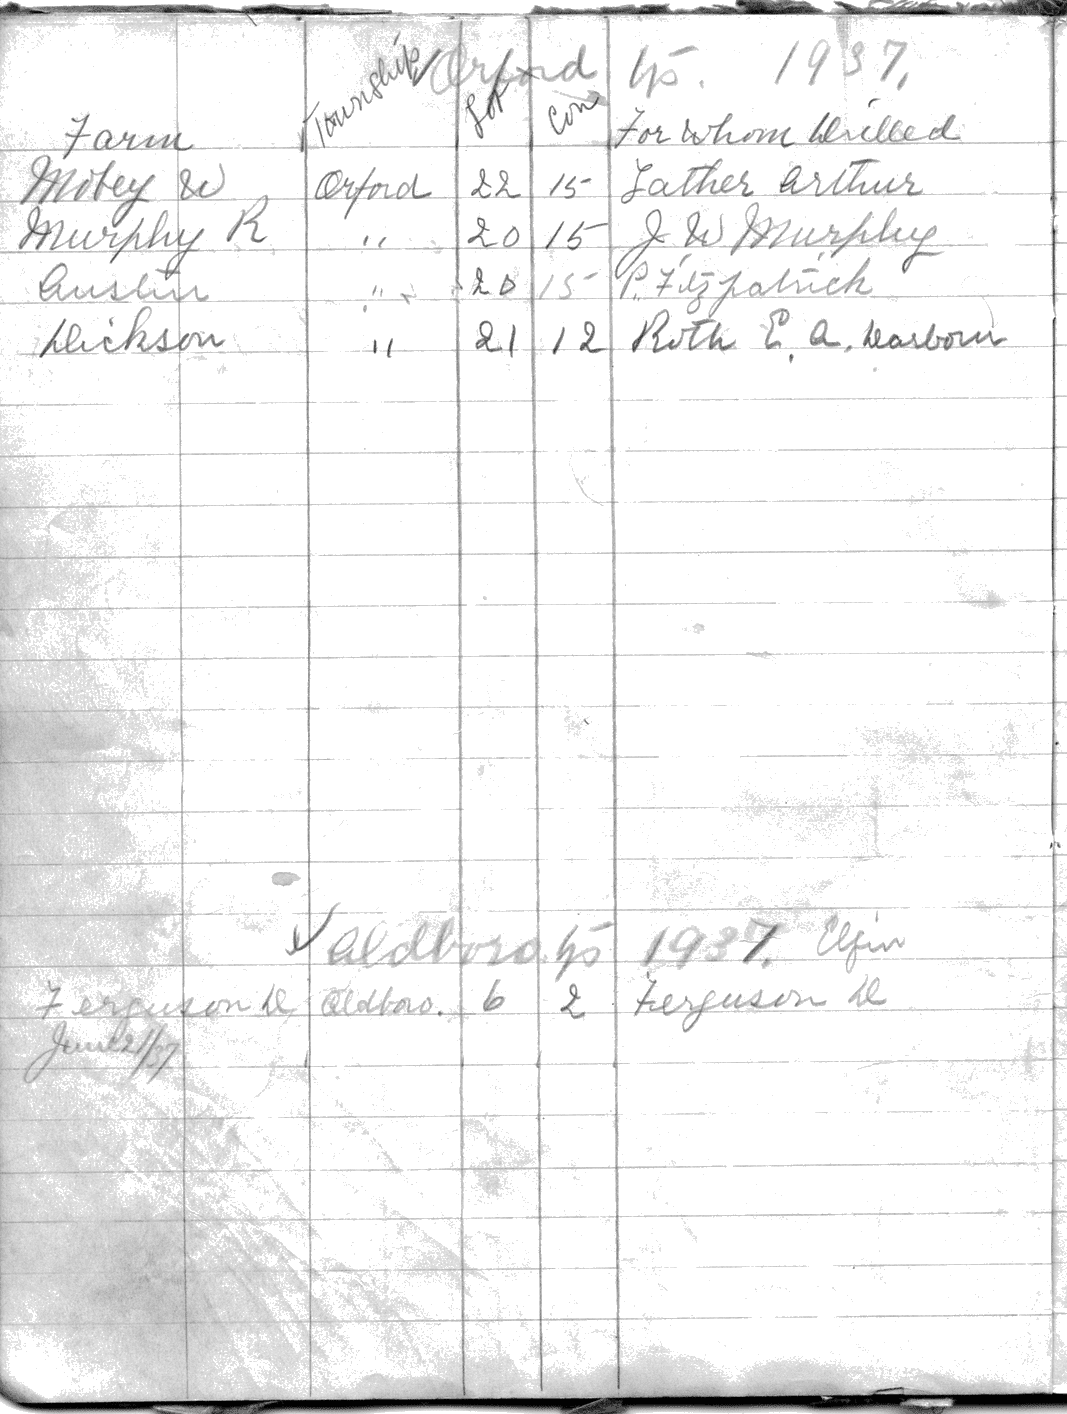 Orford Tp. 1937.
Farm Township Lot Con For Whom Drilled
Mobey W Orford 22 15 Father Arthur
Murphy R " 20 15 J W Murphy
Austin " 20 15 P. Fitzpatrick
Dickson " 21 12 Roth E. A. Dearborn
Aldboro Tp 1937. Elgin
Ferguson D Aldboro. 6 2 Ferguson D
June 21/37